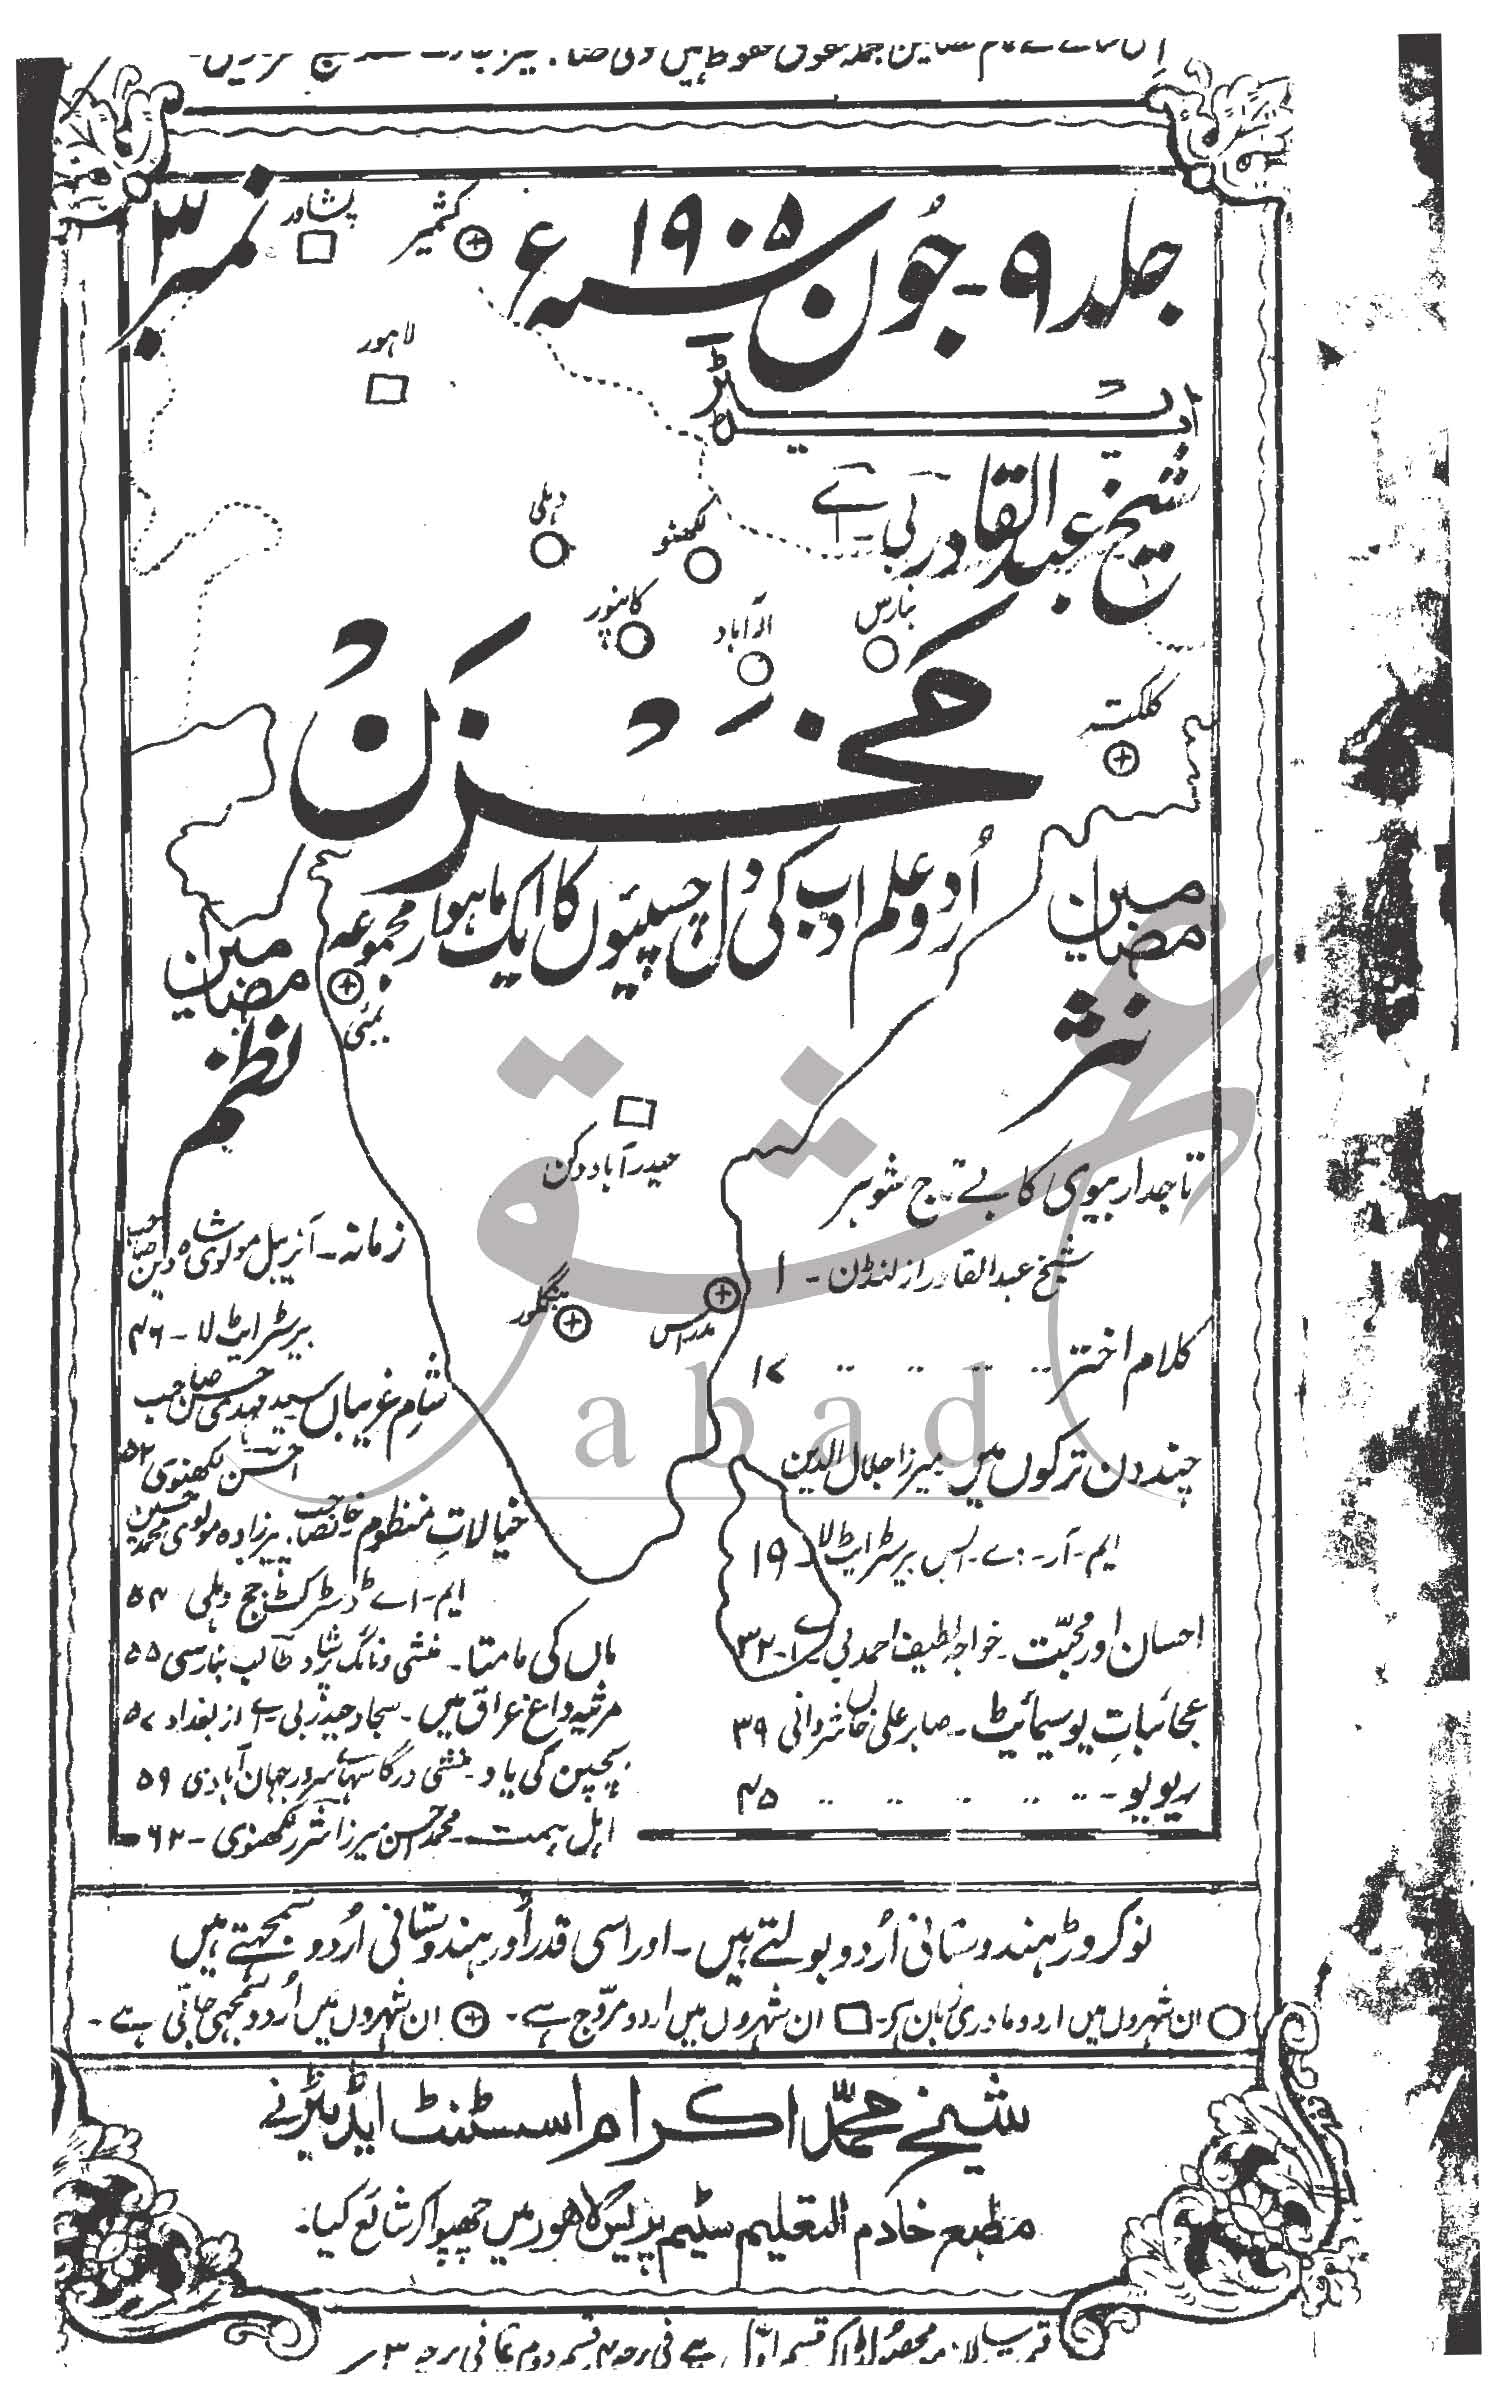 جلد ۹ - جُون سنہ ۱۹۰۵ ء
نمبر ۳
پشاور
کشمیر
لاہور
ایڈیٹر
شیخ عبدالقادر بی - اے
دہلی
لکھنؤ
کانپور
الہ آباد
بنارس
کلکتہ
مخزن
اُردو علم ادب کی دلچسپیوں کا ایک ماہوار مجموعہ
بمبئی
حیدرآباد دکن
بنگلور
مدراس
مضامین
نثر
تاجدار بیوی کا بے تاج شوہر
شیخ عبدالقادر از لنڈن - ۱
کلام اختر ۱۷
چند دن ترکوں میں میرزا جلال الدین
ایم - آر - اے - ایس بیرسٹرایٹ لا - ۱۹
احسان اور محبّت - خواجہ لطیف احمد بی - اے - ۳۲
عجائباتِ یوسیمائیٹ - صابر علی خاں شروانی ۳۹
ریویو - ۴۵
مضامین
نظم
زمانہ - آنریبل مولوی شاہ دین صاحب
بیرسٹر ایٹ لا - ۴۶
شامِ غریباں سید مہدی حسن صاحب
احسن لکھنوی ۵۲
خیالاتِ منظوم خانصاحب پیرزادہ مولوی محمد حسین
ایم - اے ڈسٹرکٹ جج دہلی ۵۴
ماں کی مامتا - منشی ونائک پرشاد طالب بنارسی ۵۵
مرثیہ داغ عراق میں - سجاد حیدر بی - اے از بغداد ۵۷
بچپن کی یاد - منشی درگا سہائے سرور جہان آبادی ۵۹
اہل ہمت - محمد احسن میرزا شرر لکھنوی - ۶۲
نو کروڑ ہندوستانی اُردو بولتے ہیں - اور اسی قدر اور ہندوستانی اُردو سمجھتے ہیں
ان شہروں میں اردو مادری زبان ہے - ان شہروں میں اردو مروّج ہے - ان شہروں میں اُردو سمجھی جاتی ہے -
شیخ محمّد اکرام اسسٹنٹ ایڈیٹر نے
مطبع خادم التعلیم سٹیم پریس لاہور میں چھپوا کر شائع کیا -
abad